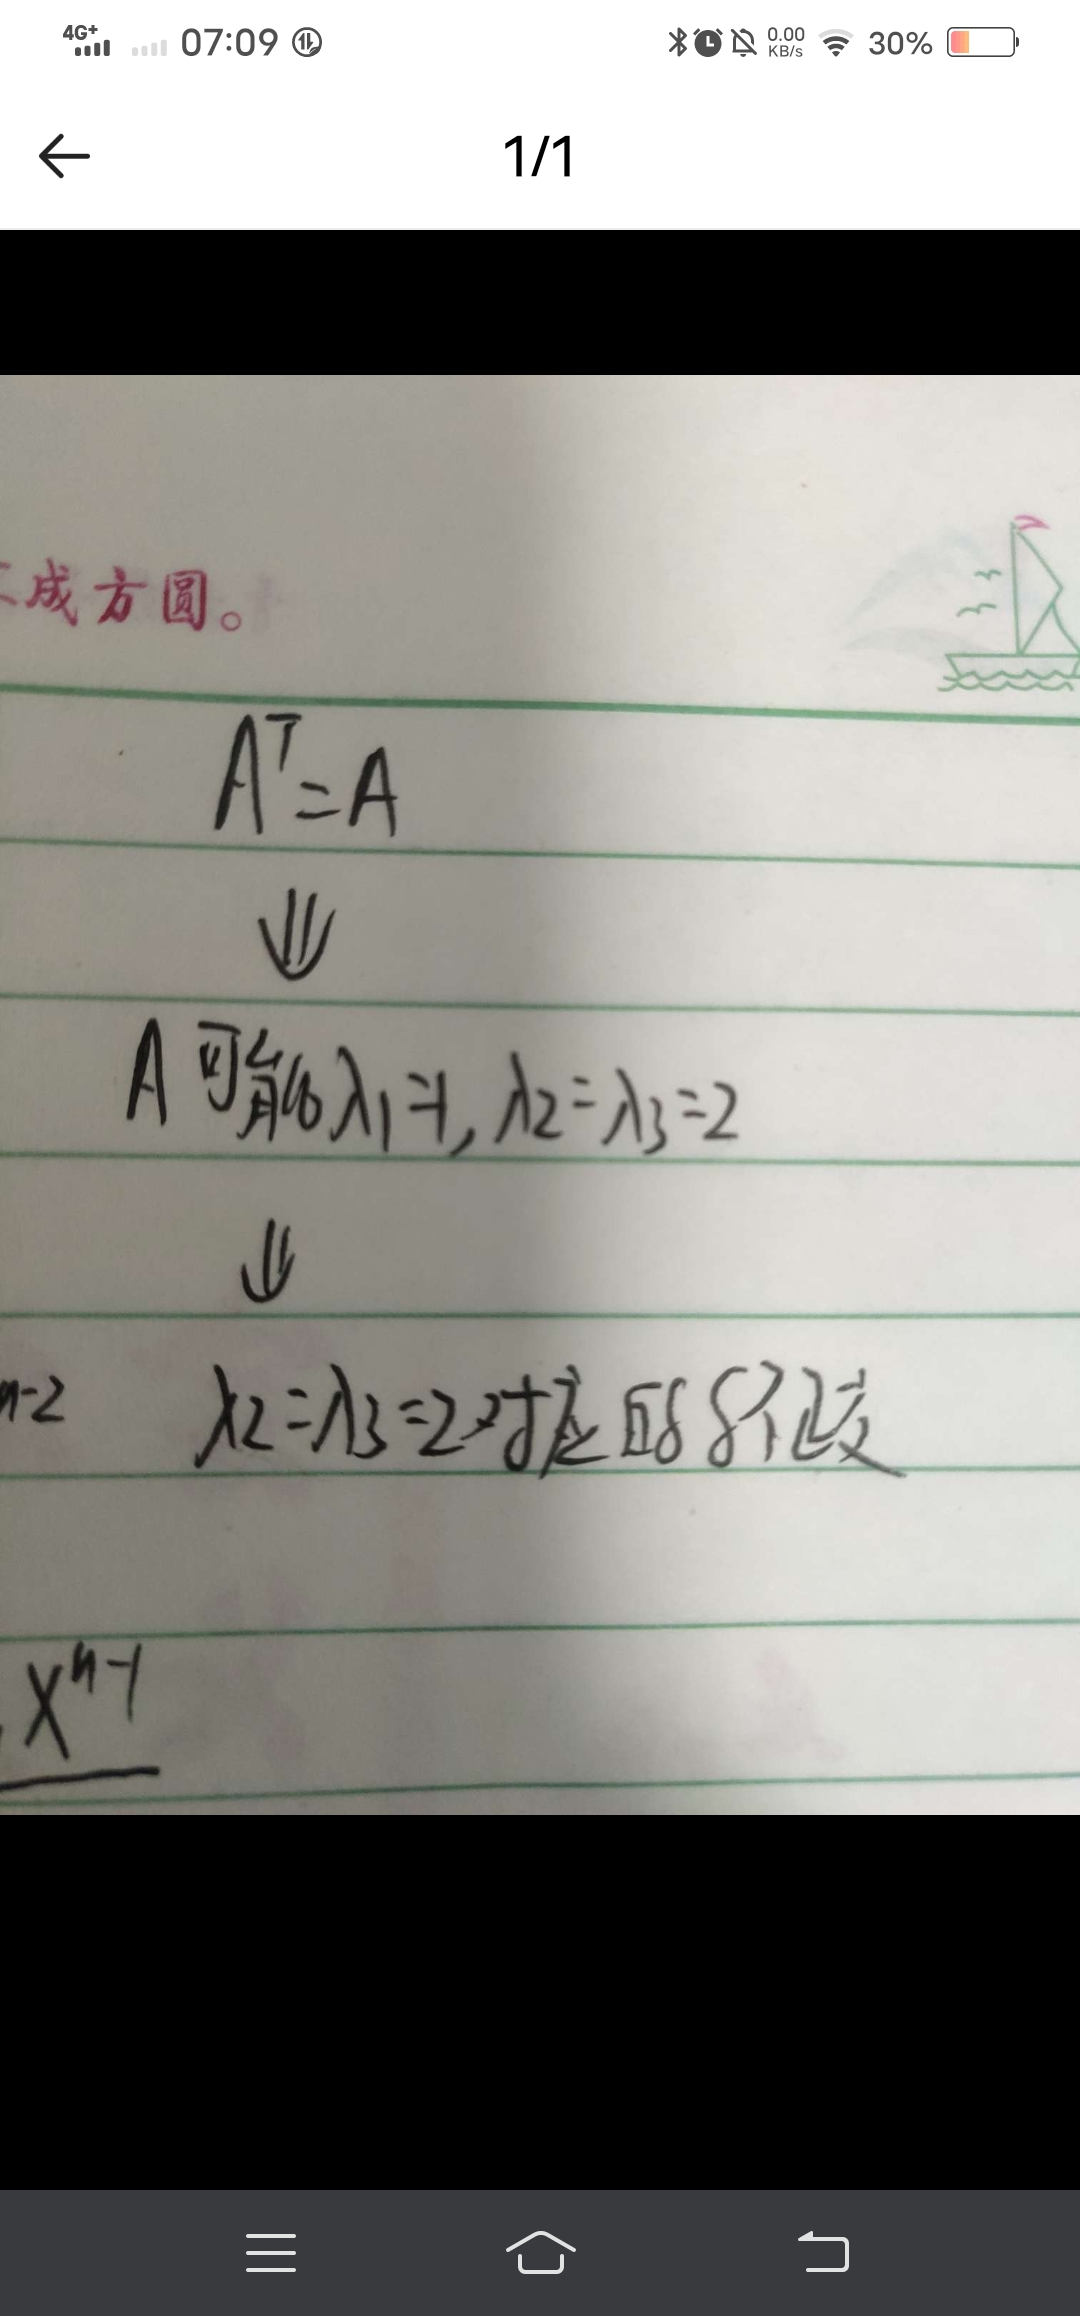 4G+ 07:09 0.00 KB/s 30%
1/1
成方圆。
Aᵀ=A
⇓
A 可能的 λ₁=1, λ₂=λ₃=2
⇓
n-2 λ₂=λ₃=2对应的 ξ不正交
xⁿ⁻¹